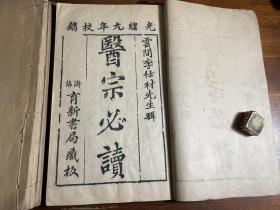 光緒九年校鐫
雲間李仕材先生輯
醫宗必讀
育新書局藏板